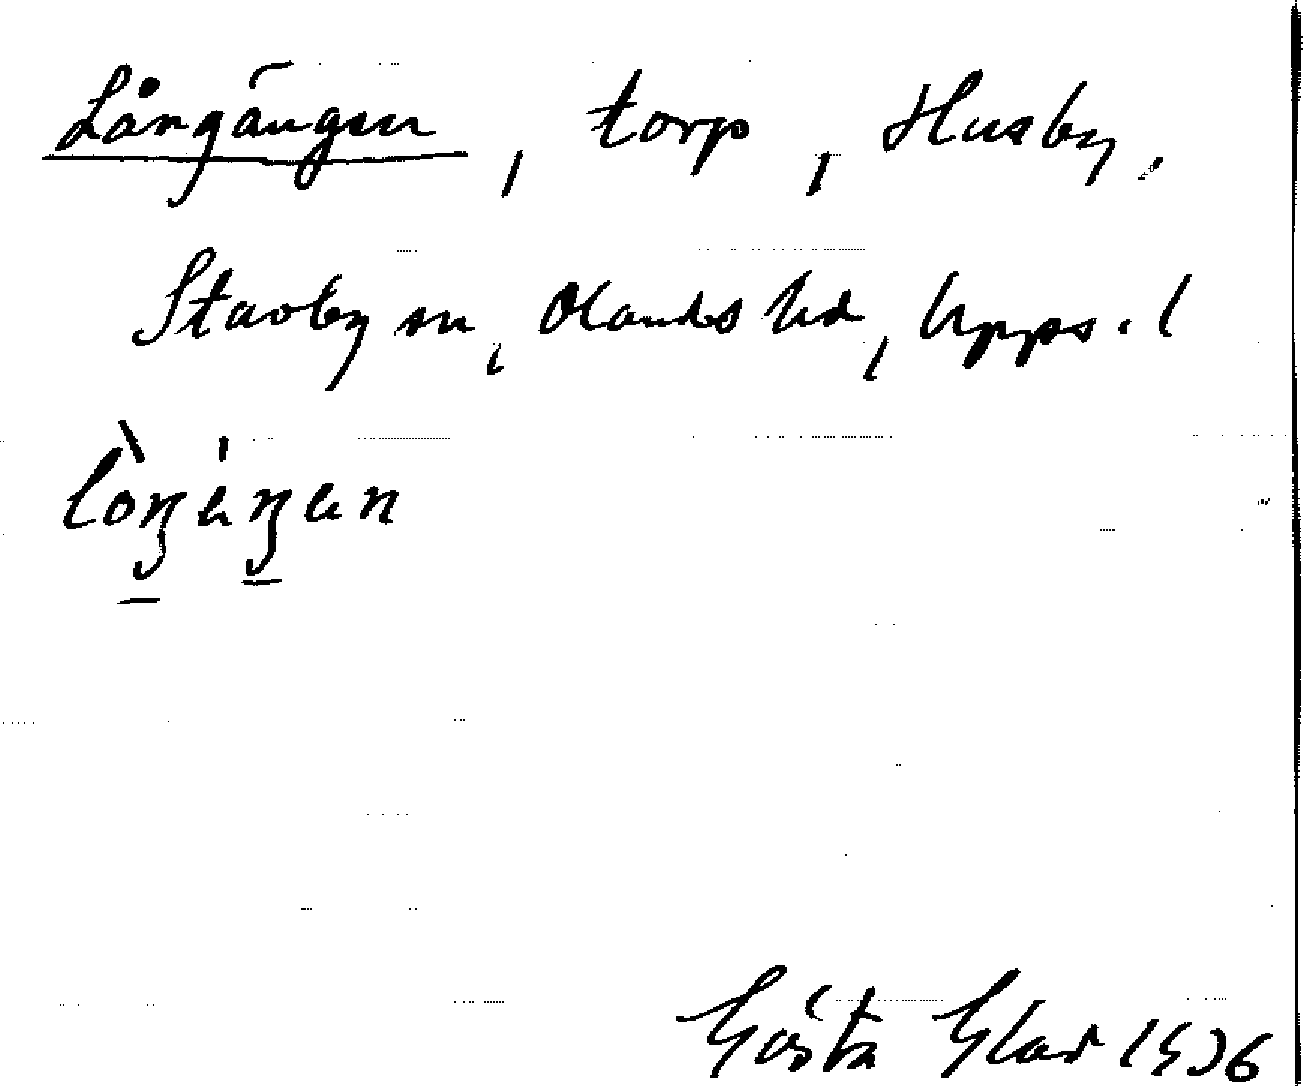 Långängen, torp, Husby,
Stavby sn, Olands hd, Upps. l
lòŋéŋen
Gösta Glad 1936